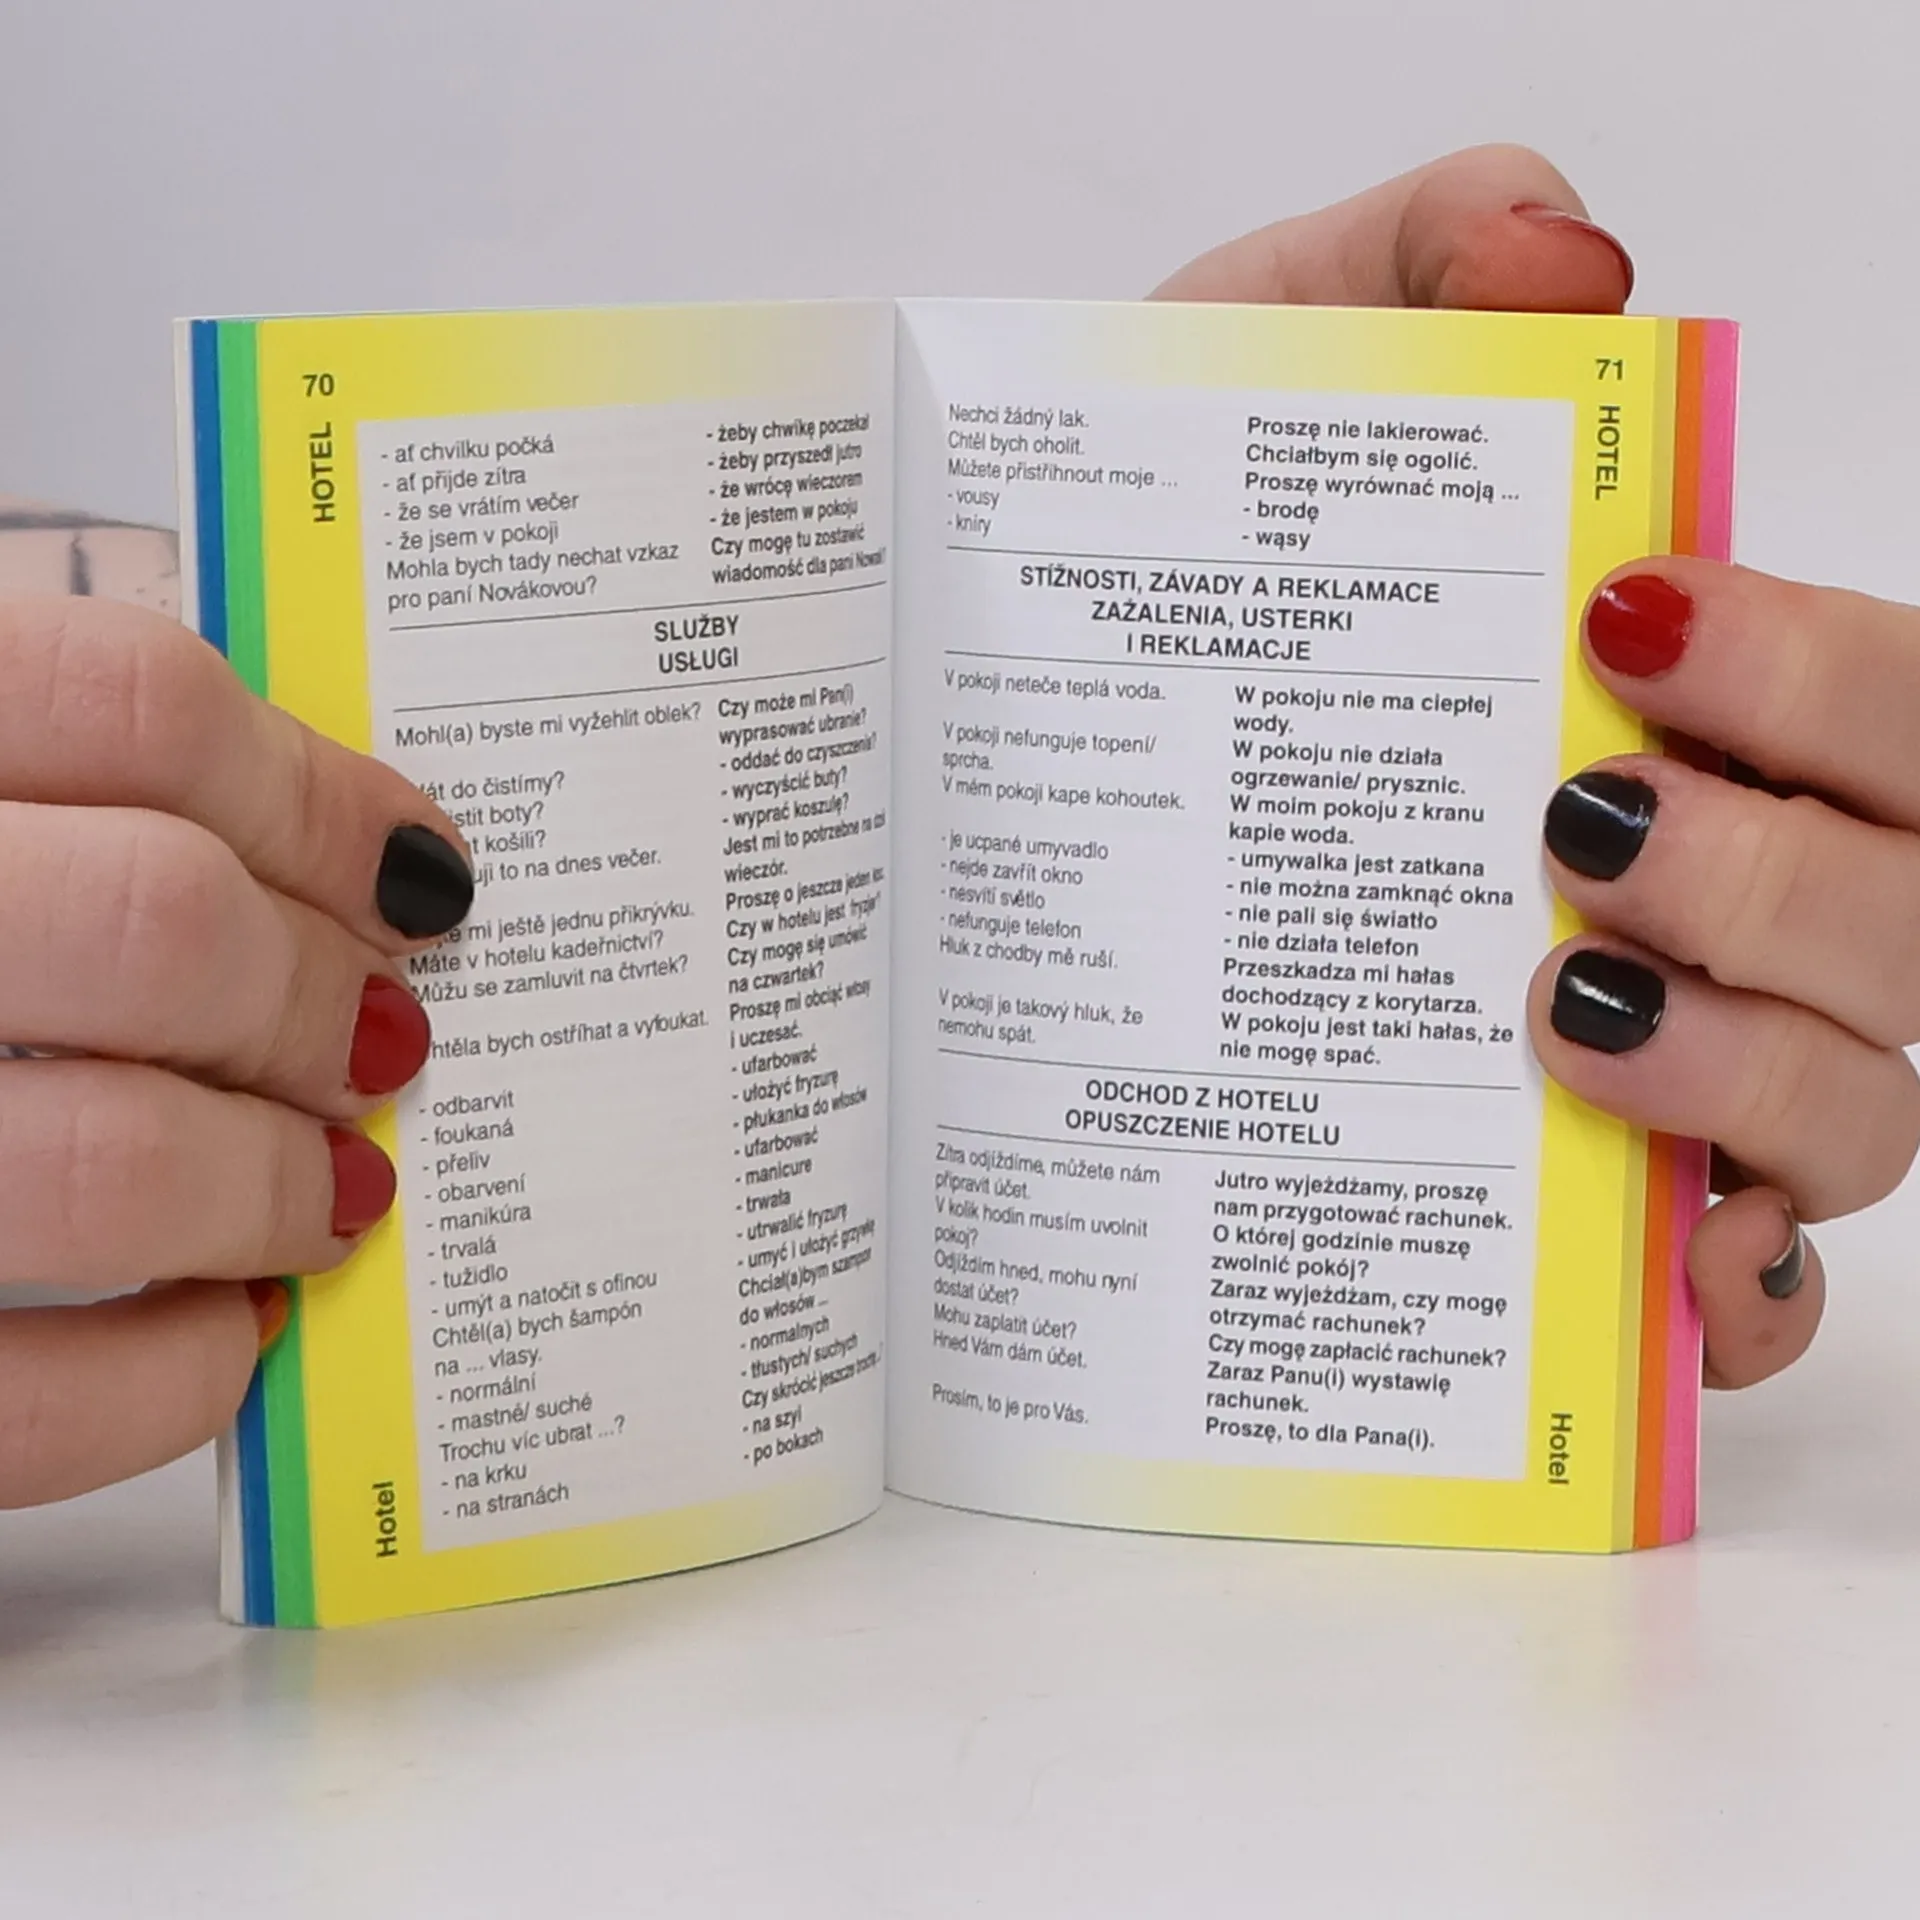 70
HOTEL
- ať chvilku počká
- ať přijde zítra
- že se vrátím večer
- že jsem v pokoji
Mohla bych tady nechat vzkaz
pro paní Novákovou?
- żeby chwikę poczekał
- żeby przyszedł jutro
- że wrócę wieczorem
- że jestem w pokoju
Czy mogę tu zostawić
wiadomość dla pani
SLUŽBY
USŁUGI
Mohl(a) byste mi vyžehlit oblek?
do čistírny?
boty?
košili?
to na dnes večer.
mi ještě jednu přikrývku.
Máte v hotelu kadeřnictví?
Můžu se zamluvit na čtvrtek?
bych ostříhat a vyfoukat.
- odbarvit
- foukaná
- přeliv
- obarvení
- manikúra
- trvalá
- tužidlo
- umýt a natočit s ofinou
Chtěl(a) bych šampón
na ... vlasy.
- normální
- mastné/ suché
Trochu víc ubrat ...?
- na krku
- na stranách
Czy może mi Pan(i)
wyprasować ubranie?
- oddać do czyszczenia?
- wyczyścić buty?
- wyprać koszulę?
Jest mi to potrzebne na
wieczór.
Proszę o jeszcze jeden koc.
Czy w hotelu jest fryzjer?
Czy mogę się umówić
na czwartek?
Proszę mi obciąć włosy
i uczesać.
- ufarbować
- ułożyć fryzurę
- płukanka do włosów
- ufarbować
- manicure
- trwała
- utrwalić fryzurę
- umyć i ułożyć grzywkę
Chciał(a)bym szampon
do włosów ...
- normalnych
- tłustych/ suchych
Czy skrócić jeszcze trochę...?
- na szyi
- po bokach
Hotel
71
HOTEL
Nechci žádný lak.
Chtěl bych oholit.
Můžete přistřihnout moje ...
- vousy
- kníry
Proszę nie lakierować.
Chciałbym się ogolić.
Proszę wyrównać moją ...
- brodę
- wąsy
STÍŽNOSTI, ZÁVADY A REKLAMACE
ZAŻALENIA, USTERKI
I REKLAMACJE
V pokoji neteče teplá voda.
V pokoji nefunguje topení/
sprcha.
V mém pokoji kape kohoutek.
- je ucpané umyvadlo
- nejde zavřít okno
- nesvítí světlo
- nefunguje telefon
Hluk z chodby mě ruší.
V pokoji je takový hluk, že
nemohu spát.
W pokoju nie ma ciepłej
wody.
W pokoju nie działa
ogrzewanie/ prysznic.
W moim pokoju z kranu
kapie woda.
- umywalka jest zatkana
- nie można zamknąć okna
- nie pali się światło
- nie działa telefon
Przeszkadza mi hałas
dochodzący z korytarza.
W pokoju jest taki hałas, że
nie mogę spać.
ODCHOD Z HOTELU
OPUSZCZENIE HOTELU
Zítra odjíždíme, můžete nám
připravit účet.
V kolik hodin musím uvolnit
pokoj?
Odjíždím hned, mohu nyní
dostat účet?
Mohu zaplatit účet?
Hned Vám dám účet.
Prosím, to je pro Vás.
Jutro wyjeżdżamy, proszę
nam przygotować rachunek.
O której godzinie muszę
zwolnić pokój?
Zaraz wyjeżdżam, czy mogę
otrzymać rachunek?
Czy mogę zapłacić rachunek?
Zaraz Panu(i) wystawię
rachunek.
Proszę, to dla Pana(i).
Hotel